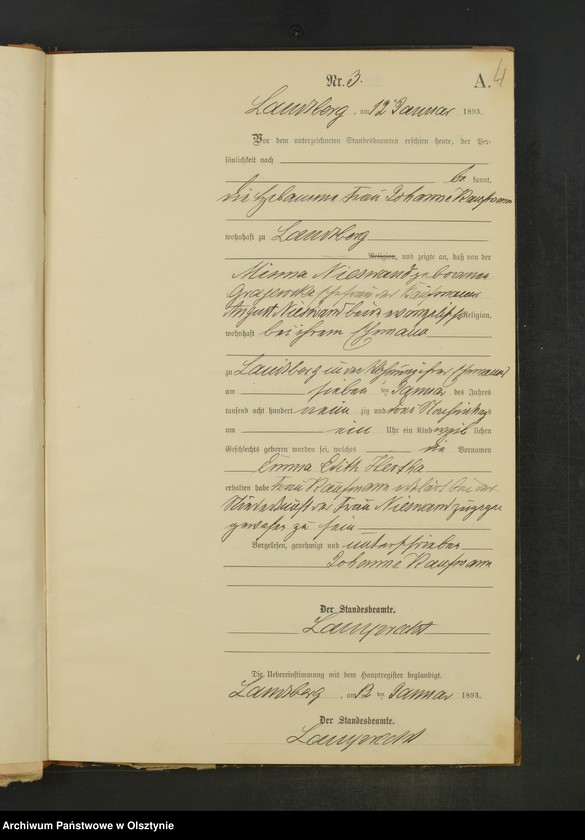 Nr. 3. A. 4
Landsberg, am 12 Januar 1893.
Vor dem unterzeichneten Standesbeamten erschien heute, der Per-
sönlichkeit nach
be kannt,
die Hebamme Frau Johanne Kaufmann
wohnhaft zu Landsberg
Religion, und zeigte an, daß von der
Minna Niesward geborenen
Grajewska Ehefrau des Kaufmanns
August Niesward beide evangelischer Religion,
wohnhaft bei ihrem Ehemann
zu Landsberg in der Wohnung ihres Ehemanns
am sieben ten Januar des Jahres
tausend acht hundert neun zig und drei Nachmittags
um ein Uhr ein Kind weib lichen
Geschlechts geboren worden sei, welches die Vornamen
Emma Edith Hertha
erhalten habe Frau Kaufmann erklärt bei der
Niederkunft der Frau Niesward zugegen
gewesen zu sein
Vorgelesen, genehmigt und unterschrieben
Johanne Kaufmann
Der Standesbeamte.
Lamprecht
Die Uebereinstimmung mit dem Hauptregister beglaubigt.
Landsberg, am 12 ten Januar 1893.
Der Standesbeamte.
Lamprecht
Archiwum Państwowe w Olsztynie